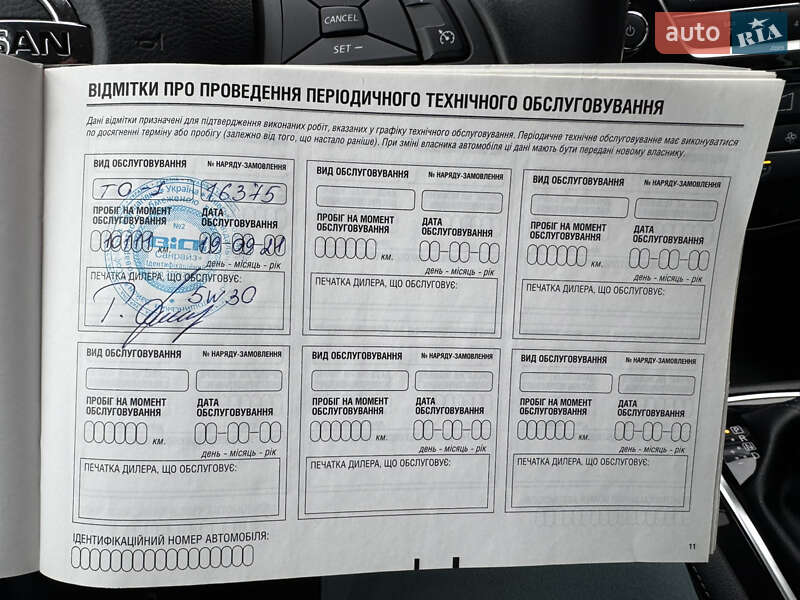 SSAN
CANCEL
SET
auto RIA
.com
ВІДМІТКИ ПРО ПРОВЕДЕННЯ ПЕРІОДИЧНОГО ТЕХНІЧНОГО ОБСЛУГОВУВАННЯ
Дані відмітки призначені для підтвердження виконаних робіт, вказаних у графіку технічного обслуговування. Періодичне технічне обслуговуванне має виконуватися
по досягненні терміну або пробігу (залежно від того, що настало раніше). При зміні власника автомобіля ці дані мають бути передані новому власнику.
ВИД ОБСЛУГОВУВАННЯ № НАРЯДУ-ЗАМОВЛЕННЯ
ТО-1 16375
ПРОБІГ НА МОМЕНТ ОБСЛУГОВУВАННЯ
ДАТА ОБСЛУГОВУВАННЯ
10111 км. 19-09-21
день - місяць - рік
ПЕЧАТКА ДИЛЕРА, ЩО ОБСЛУГОВУЄ:
5W30
Україна
№2
ВіДі
Санрайз
Ідентифікаційний
ВИД ОБСЛУГОВУВАННЯ № НАРЯДУ-ЗАМОВЛЕННЯ
ПРОБІГ НА МОМЕНТ ОБСЛУГОВУВАННЯ
ДАТА ОБСЛУГОВУВАННЯ
км.
день - місяць - рік
ПЕЧАТКА ДИЛЕРА, ЩО ОБСЛУГОВУЄ:
ВИД ОБСЛУГОВУВАННЯ № НАРЯДУ-ЗАМОВЛЕННЯ
ПРОБІГ НА МОМЕНТ ОБСЛУГОВУВАННЯ
ДАТА ОБСЛУГОВУВАННЯ
км.
день - місяць - рік
ПЕЧАТКА ДИЛЕРА, ЩО ОБСЛУГОВУЄ:
ВИД ОБСЛУГОВУВАННЯ № НАРЯДУ-ЗАМОВЛЕННЯ
ПРОБІГ НА МОМЕНТ ОБСЛУГОВУВАННЯ
ДАТА ОБСЛУГОВУВАННЯ
км.
день - місяць - рік
ПЕЧАТКА ДИЛЕРА, ЩО ОБСЛУГОВУЄ:
ВИД ОБСЛУГОВУВАННЯ № НАРЯДУ-ЗАМОВЛЕННЯ
ПРОБІГ НА МОМЕНТ ОБСЛУГОВУВАННЯ
ДАТА ОБСЛУГОВУВАННЯ
км.
день - місяць - рік
ПЕЧАТКА ДИЛЕРА, ЩО ОБСЛУГОВУЄ:
ВИД ОБСЛУГОВУВАННЯ № НАРЯДУ-ЗАМОВЛЕННЯ
ПРОБІГ НА МОМЕНТ ОБСЛУГОВУВАННЯ
ДАТА ОБСЛУГОВУВАННЯ
км.
день - місяць - рік
ПЕЧАТКА ДИЛЕРА, ЩО ОБСЛУГОВУЄ:
ІДЕНТИФІКАЦІЙНИЙ НОМЕР АВТОМОБІЛЯ:
11